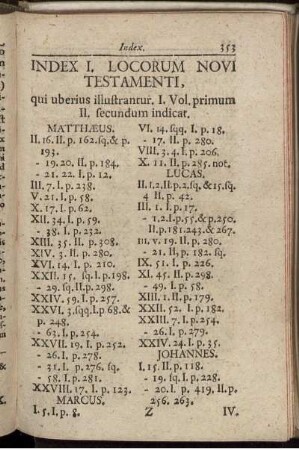 Index. 353
INDEX I. LOCORUM NOVI
TESTAMENTI,
qui uberius illustrantur. I. Vol. primum
II. secundum indicat.
MATTHÆUS.
II. 16. II. p. 162. sq. & p.
193.
- 19. 20. II. p. 184.
- 21. 22. I. p. 12.
III. 7. I. p. 238.
V. 21. I. p. 58.
X. 17. I. p. 62.
XII. 34. I. p. 59.
- 38. I. p. 232.
XIII. 35. II. p. 308.
XIV. 3. II. p. 280.
XVI. 14. I. p. 210.
XXII. 15. sq. I. p. 198.
- 29. sq. II. p. 298.
XXIV. 59. I. p. 257.
XXVI. 3. sqq. I. p. 68. &
p. 248.
- 63. I. p. 254.
XXVII. 19. I. p. 252.
- 26. I. p. 278.
- 31. I. p. 276. sq.
- 58. I. p. 281.
XXVIII. 17. I. p. 123.
MARCUS.
I. 5. I. p. 8.
VI. 14. sqq. I. p. 18.
- 17. II. p. 280.
VIII. 3. 4. I. p. 206.
X. 11. II. p. 285. not.
LUCAS.
II. 1. 2. II. p. 2. sq. & 15. sq.
4 II. p. 42.
III. 1. I. p. 17.
- 1. 2. I. p. 55. & p. 250.
II. p. 181. 243. & 267.
III. v. 19. II. p. 280.
- 21. II. p. 182. sq.
IX. 51. I. p. 226.
XI. 45. II. p. 298.
- 49. I. p. 58.
XIII. 1. II. p. 179.
XXII. 52. I. p. 182.
XXIII. 7. I. p. 254.
- 26. I. p. 279.
XXIV. 24. I. p. 35.
JOHANNES.
I. 15. II. p. 118.
- 19. sq. I. p. 228.
- 20. I. p. 419. II. p.
256. 263.
Z IV.